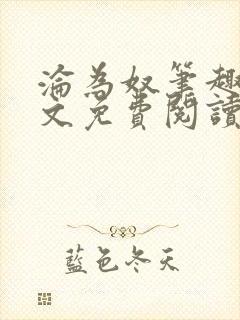 淪為奴筆趣
文免費閱讀
藍色冬天